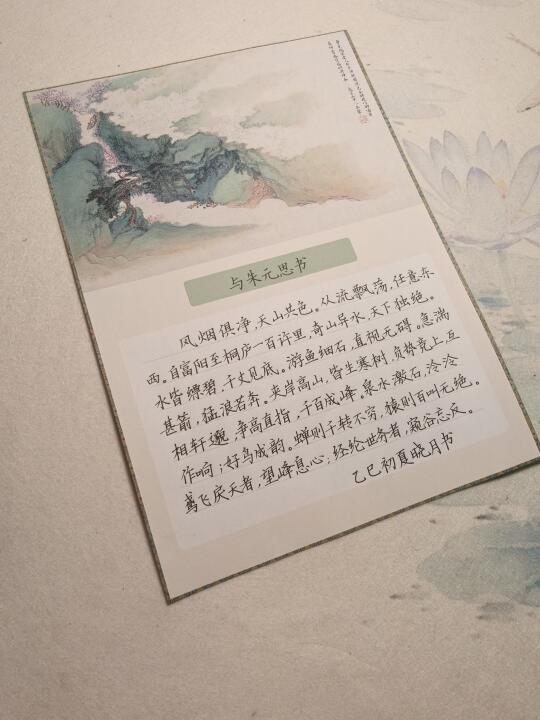 与朱元思书
风烟俱净,天山共色。从流飘荡,任意东
西。自富阳至桐庐一百许里,奇山异水,天下独绝。
水皆缥碧,千丈见底。游鱼细石,直视无碍。急湍
甚箭,猛浪若奔。夹岸高山,皆生寒树,负势竞上,互
相轩邈,争高直指,千百成峰。泉水激石,泠泠
作响;好鸟成韵。蝉则千转不穷,猿则百叫无绝。
鸢飞戾天者,望峰息心;经纶世务者,窥谷忘反。
乙巳初夏晓月书